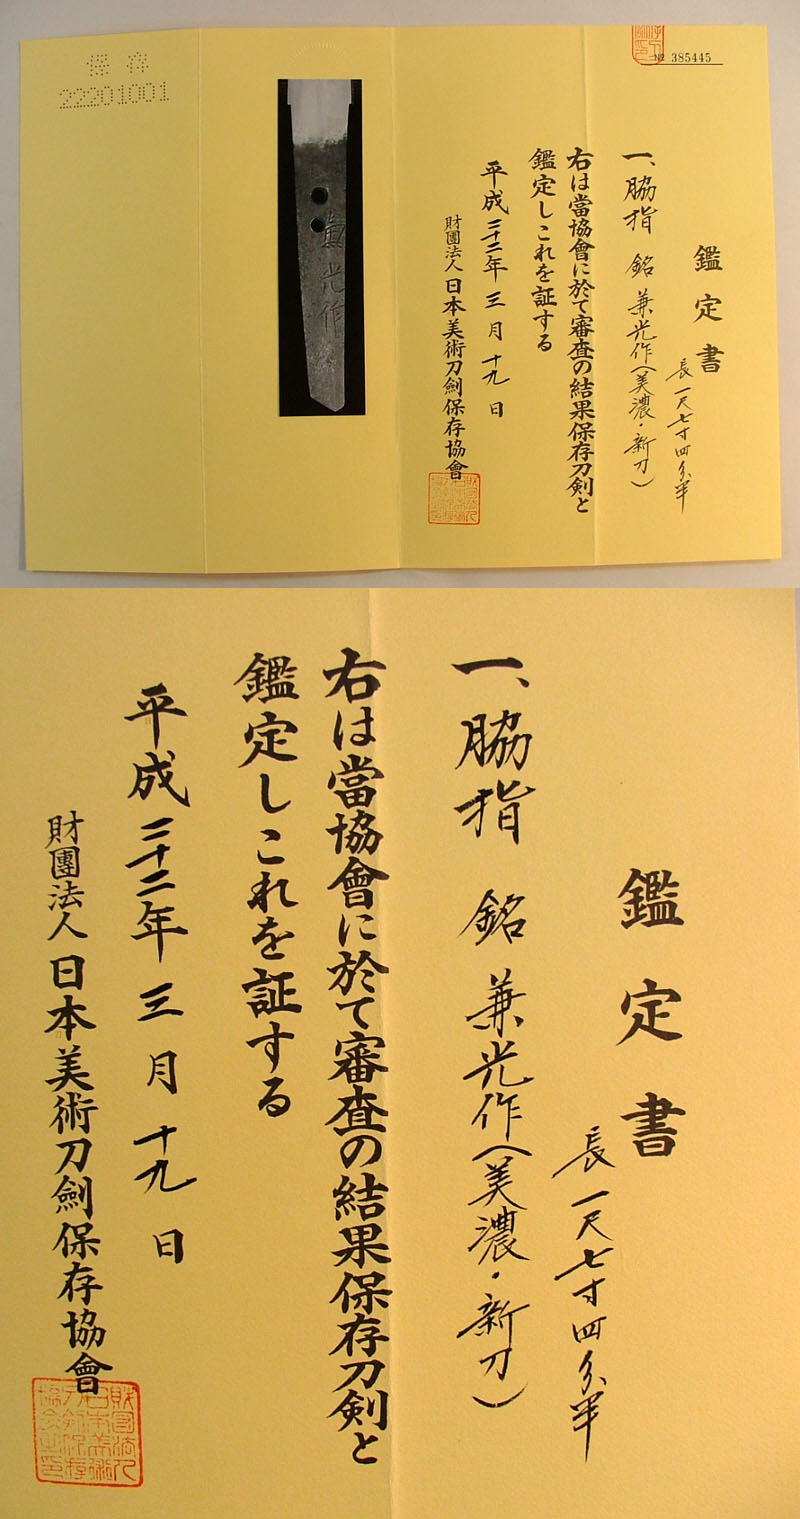 保存
22201001
兼光作
№ 385445
鑑定書
長一尺七寸四分半
一、脇指 銘 兼光作(美濃・新刀)
右は當協會に於て審査の結果保存刀剣と
鑑定しこれを証する
平成二十二年三月十九日
財團法人日本美術刀劍保存協會
鑑定書
長一尺七寸四分半
一、脇指 銘 兼光作(美濃・新刀)
右は當協會に於て審査の結果保存刀剣と
鑑定しこれを証する
平成二十二年三月十九日
財團法人日本美術刀劍保存協會